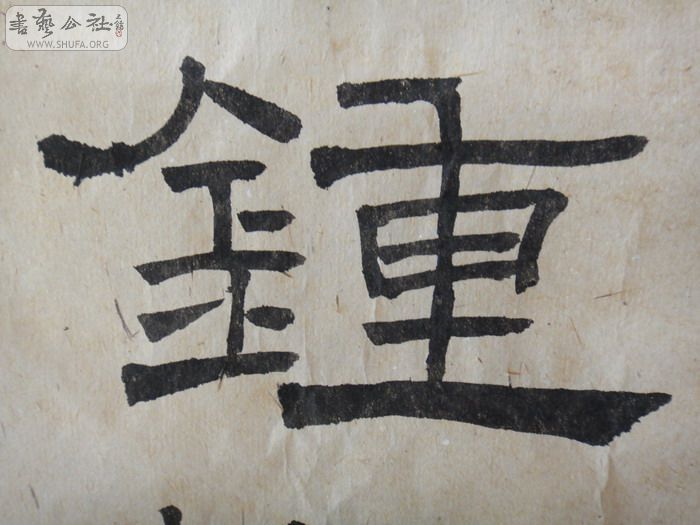 書藝公社
WWW.SHUFA.ORG
鍾